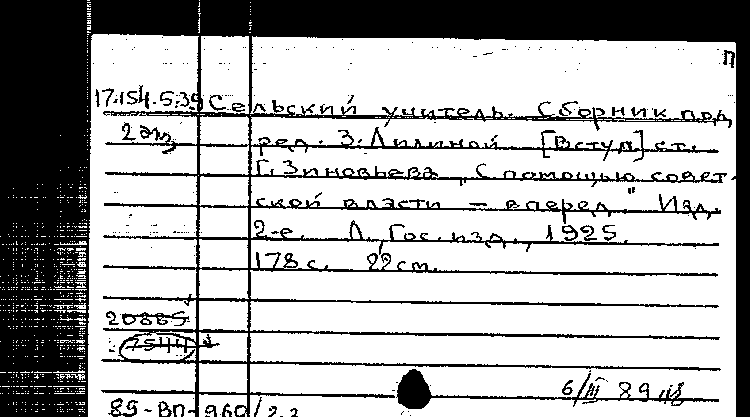 П
17.154.5.39 Сельский учитель. Сборник под
2 экз ред. З. Лилиной [Вступ] ст.
Г. Зиновьева „С помощью совет-
ской власти – вперед". Изд.
2-е. Л., Гос. изд., 1925.
178 с. 22 см.
20885
7544
6/III 89
89-ВП-960/2.3